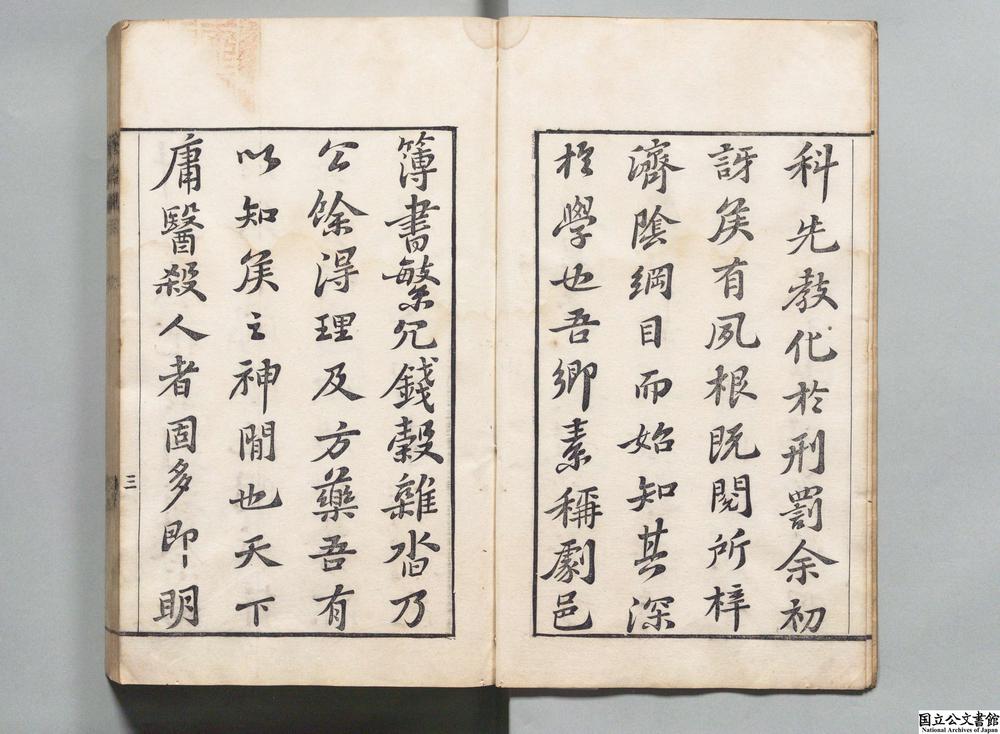 科先教化於刑罰余初
訝矦有夙根既閱所梓
濟陰綱目而始知其深
於學也吾鄉素稱劇邑
簿書繁冗錢穀雜沓乃
公餘得理及方藥吾有
以知矦之神閒也天下
庸醫殺人者固多即明
三
国立公文書館
National Archives of Japan